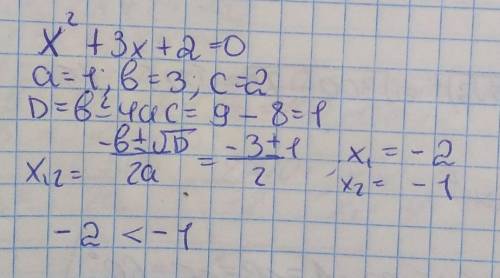 x² + 3x + 2 = 0
a = 1; в = 3; c = 2
D = в² - 4ac = 9 - 8 = 1
x₁,₂ = (-в ± √D)/2a = (-3 ± 1)/2 x₁ = -2
x₂ = -1
-2 < -1